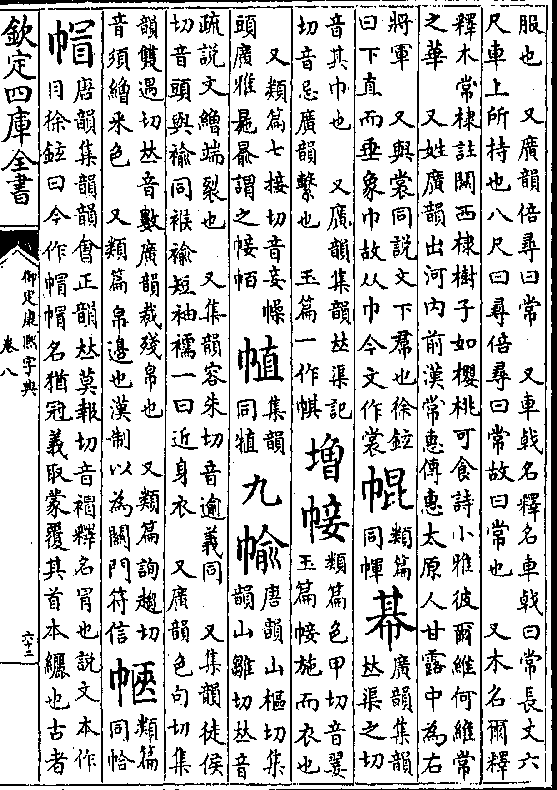 服也　又廣韻倍尋曰常　又車戟名釋名車戟曰常長丈六
尺車上所持也八尺曰尋倍尋曰常故曰常也　又木名爾釋
釋木常棣註關西棣樹子如櫻桃可食詩小雅彼爾維何維常
之華　又姓廣韻出河內前漢常惠傳惠太原人甘露中為右
將軍　又與裳同說文下帬也徐鉉
曰下直而垂象巾故从巾今文作裳
㡓
類篇
同幝
廣韻集韻
𠀤渠之切
音其巾也　又廣韻集韻𠀤渠記
切音忌廣韻繫也　玉篇一作帺
增
帹
類篇色甲切音翣
玉篇帹施而衣也
又類篇七接切音妾幧
頭廣雅謂之帹
集韻
同犆
九
㡏
唐韻山樞切集
韻山雛切𠀤音
疏說文繒端裂也　又集韻容朱切音逾義同　又集韻徒侯
切音頭與褕同褕短袖襦一曰近身衣　又廣韻色句切集
韻雙遇切𠀤音數廣韻裁殘帛也　又類篇詢趨切
音須繒采色　又類篇帛邊也漢制以為關門符信
類篇
同帢
帽
唐韻集韻韻會正韻𠀤莫報切音䄃釋名冒也說文本作
冃徐鉉曰今作帽帽名猶冠義取蒙覆其首本纚也古者
欽定四庫全書
御定康熙字典
卷八
六二